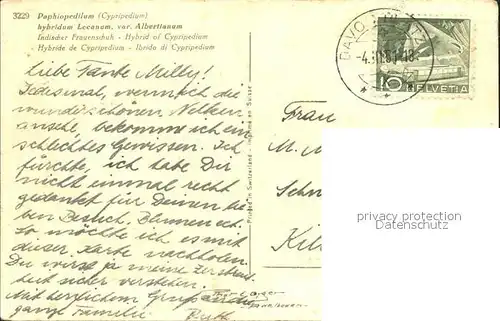 3229 Paphiopedilum (Cypripedium)
hybridum Lecanum, var. Albertianum
Indischer Frauenschuh - Hybrid of Cypripedium
- Hybride de Cypripedium - Ibrido di Cypripedium
Liebe Tante Milly!
Jedesmal, wenn ich die
wunderschönen Nelken
ansehe, bekomme ich ein
schlechtes Gewissen. Ich
fürchte, ich habe Dir
nicht einmal recht
gedankt für Deinen lie-
ben Besuch, Blumen ect.
So möchte ich es mit
dieser Karte nachholen.
Du wirst ja meine Zerstreut-
heit sicher verstehen.
Mit herzlichem Gruss an die
ganze Familie Ruth
Printed in Switzerland - Imprimé en Suisse
DAVOS
-4.III.51-18-
10
HELVETIA
Frau
M. M
Schn
Kil
privacy protection
Datenschutz